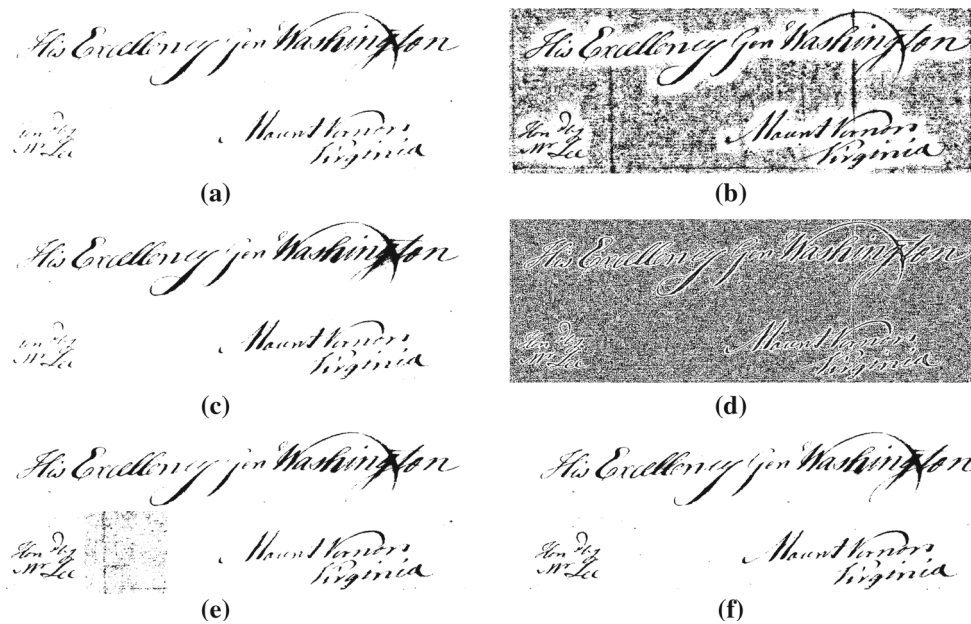 His Excellency Gen Washington
Hon d by
Mr Lee
Mount Vernon
Virginia
(a)
His Excellency Gen Washington
Hon d by
Mr Lee
Mount Vernon
Virginia
(b)
His Excellency Gen Washington
Hon d by
Mr Lee
Mount Vernon
Virginia
(c)
His Excellency Gen Washington
Hon d by
Mr Lee
Mount Vernon
Virginia
(d)
His Excellency Gen Washington
Hon d by
Mr Lee
Mount Vernon
Virginia
(e)
His Excellency Gen Washington
Hon d by
Mr Lee
Mount Vernon
Virginia
(f)